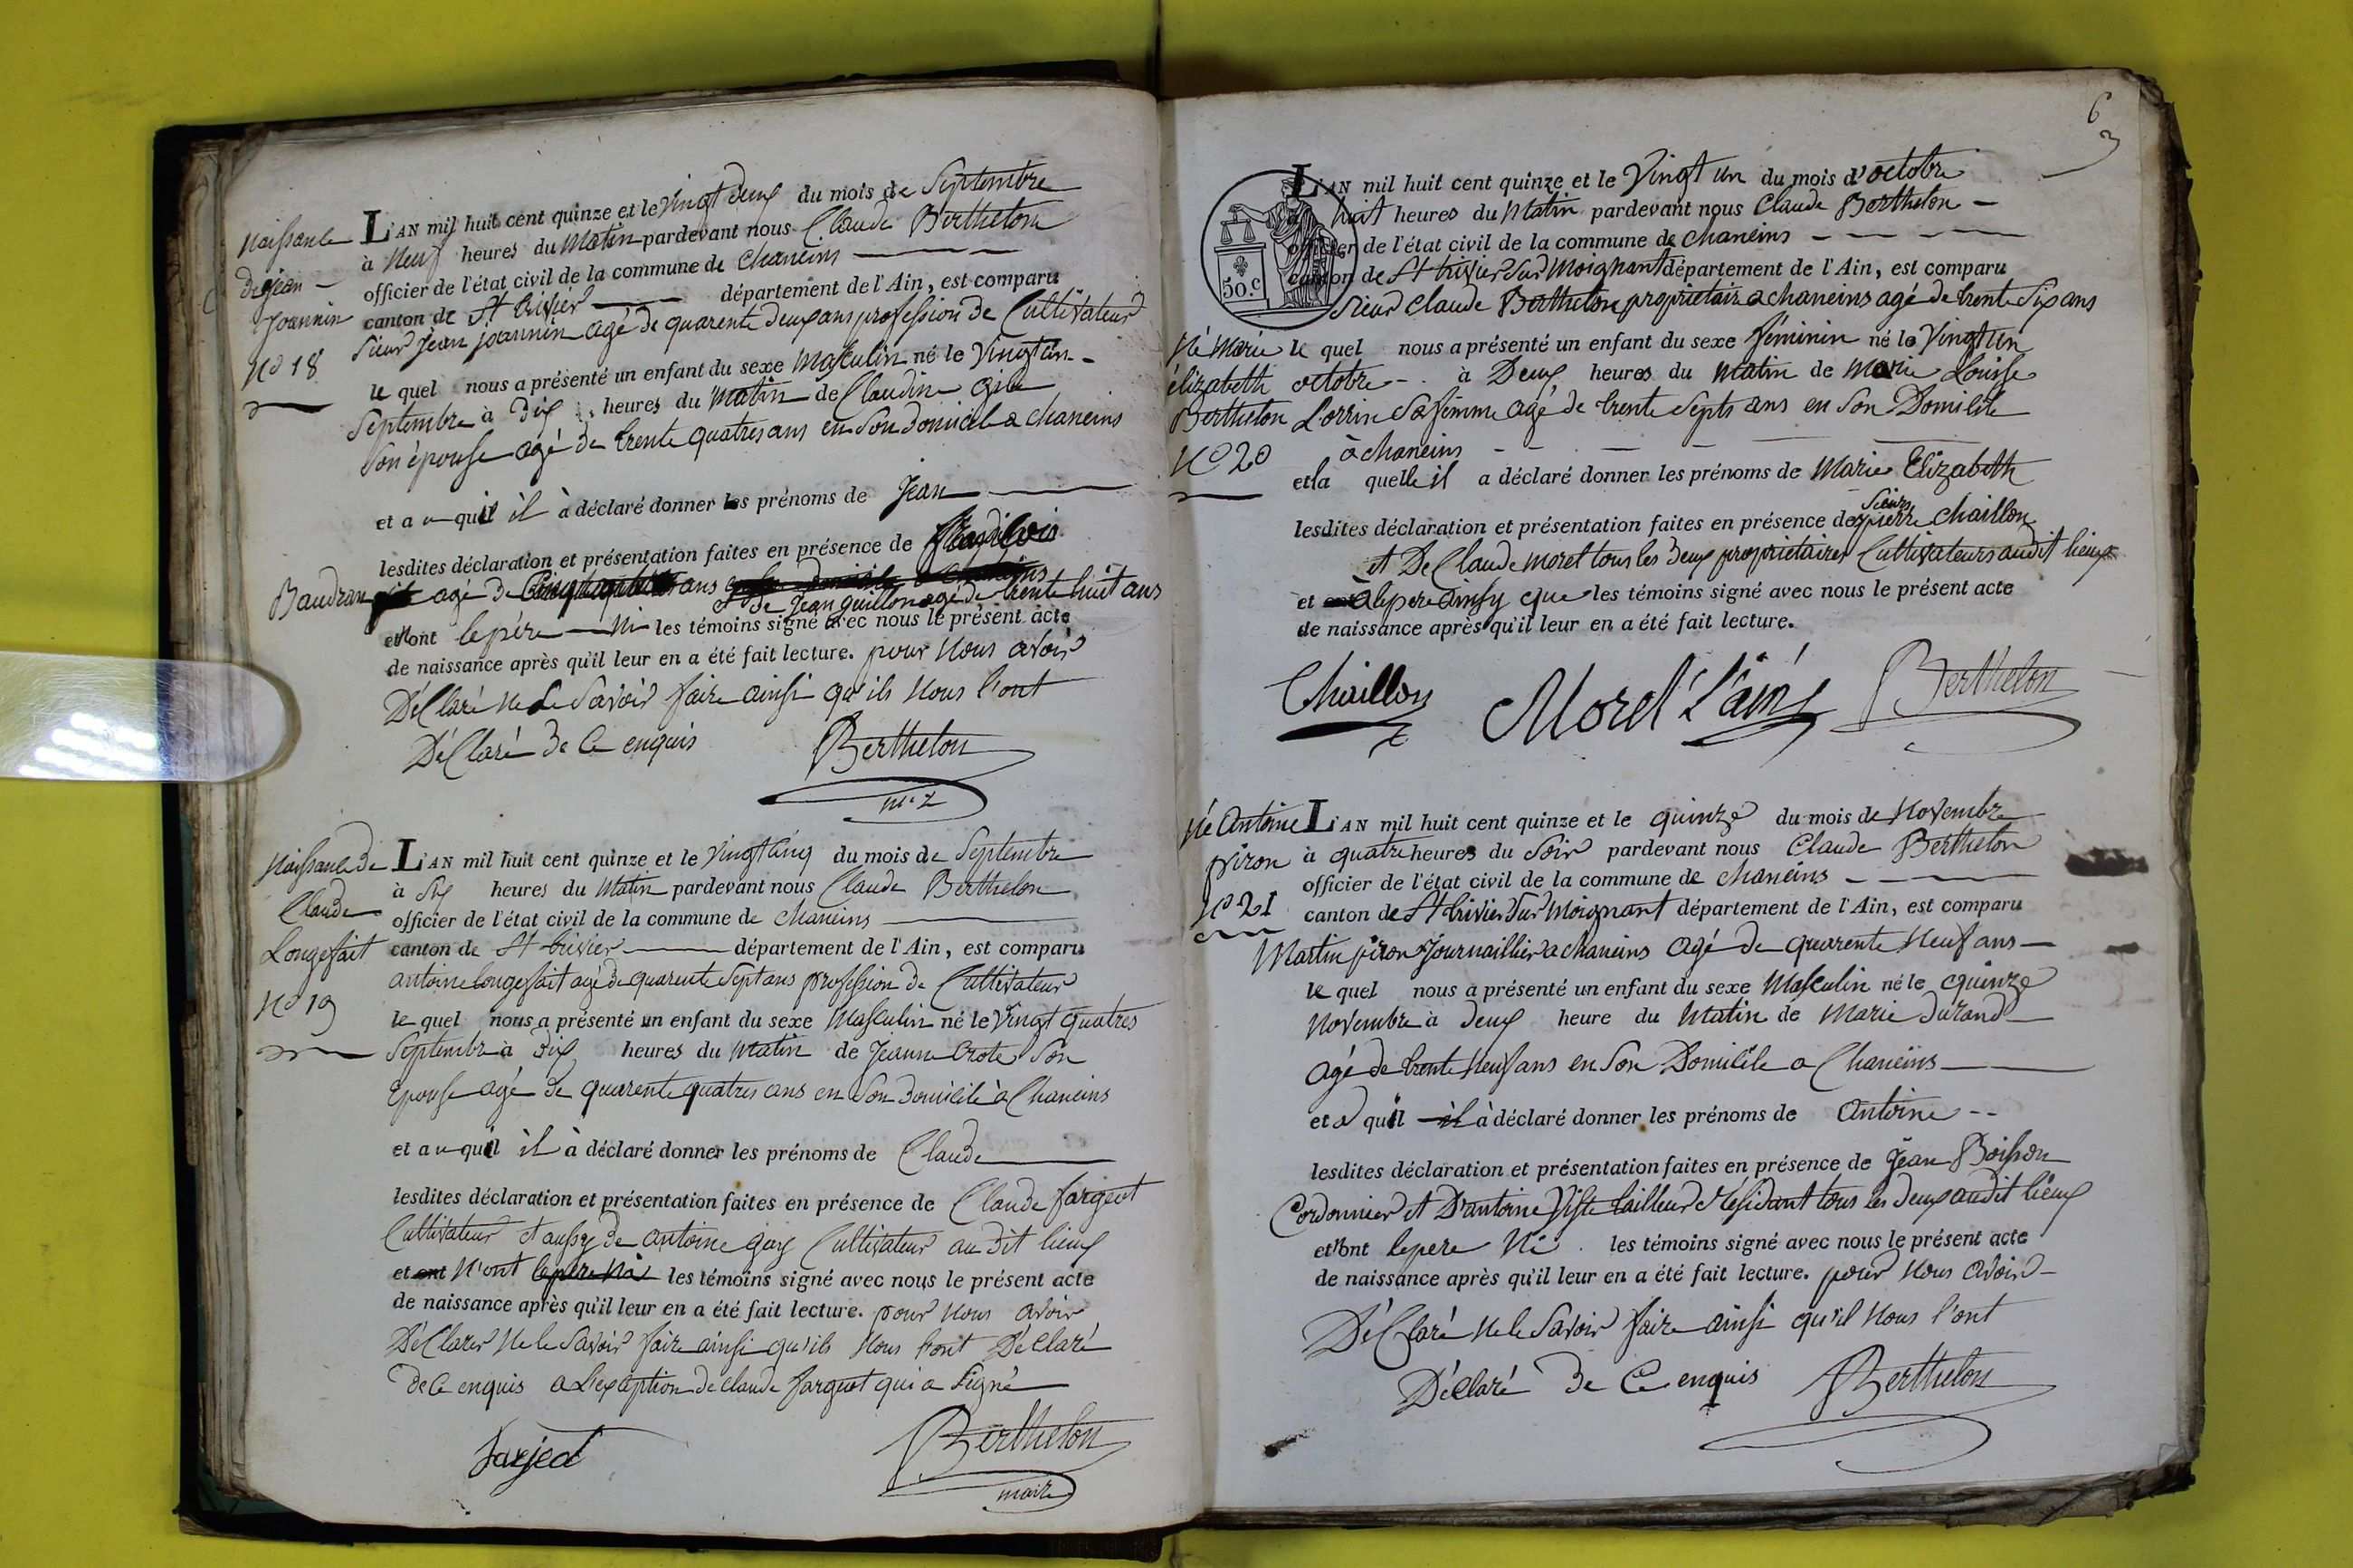 Naissance
de Jean
Joannin
No 18
L'AN mil huit cent quinze et le Vingt deux du mois de Septembre
à Neuf heures du Matin pardevant nous Claude Berthelon
officier de l'état civil de la commune de Chaneins
canton de St trivier département de l'Ain, est comparu
Sieur Jean joannin agé de quarente deux ans profession de Cultivateur
le quel nous a présenté un enfant du sexe Masculin né le Vingt un
Septembre à Dix heures du Matin de Claudine
Son épouse agé de trente quatres ans en Son Domicile a Chaneins
et auquel il à déclaré donner les prénoms de Jean
lesdites déclaration et présentation faites en présence de
Baudran agé de ans
et de Jean guillon agé de trente huit ans
et n'ont le père Ni les témoins signé avec nous le présent acte
de naissance après qu'il leur en a été fait lecture. pour Nous avoir
Déclaré ne le Savoir faire ainsi qu'ils Nous l'ont
Déclaré de Ce enquis Berthelon
Naissance de
Claude
Longefait
No 19
L'AN mil huit cent quinze et le Vingt Cinq du mois de Septembre
à Six heures du Matin pardevant nous Claude Berthelon
officier de l'état civil de la commune de Chaneins
canton de St trivier département de l'Ain, est comparu
antoine longefait agé de quarente Sept ans profession de Cultivateur
le quel nous a présenté un enfant du sexe Masculin né le Vingt quatres
Septembre à Dix heures du Matin de Jeanne Crote Son
Epouse agé de quarente quatres ans en Son Domicile à Chaneins
et auquel il à déclaré donner les prénoms de Claude
lesdites déclaration et présentation faites en présence de Claude fargeot
Cultivateur et aussy de antoine gay Cultivateur au Dit lieux
et ont N'ont le père Ni les témoins signé avec nous le présent acte
de naissance après qu'il leur en a été fait lecture. pour Nous avoir
Déclarer Ne le Savoir faire ainsi qu'ils Nous l'ont Déclaré
de Ce enquis a L'exception de Claude fargeot qui a Signé
farjeot Berthelon
maire
6
L'AN mil huit cent quinze et le Vingt un du mois d'octobre
à huit heures du Matin pardevant nous Claude Berthelon
officier de l'état civil de la commune de Chaneins
canton de St trivier Sur Moignant département de l'Ain, est comparu
50.c
Sieur Claude Berthelon proprietaire a chaneins agé de trente Six ans
Né Marie
élizabeth
Berthelon
No 20
le quel nous a présenté un enfant du sexe féminin né le Vingt Un
octobre à Deux heures du Matin de Marie Louise
Lorrin Sa femme agé de trente Septs ans en Son Domicile
à Chaneins
et la quelle il a déclaré donner les prénoms de Marie Elizabeth
lesdites déclaration et présentation faites en présence des Sieurs pierre Chaillon
et De Claude morel tous les Deux proprietaires Cultivateurs audit lieux
et a le pere ainsy que les témoins signé avec nous le présent acte
de naissance après qu'il leur en a été fait lecture.
Chaillon Morel L'ainé Berthelon
Né Antoine
piron
No 21
L'AN mil huit cent quinze et le quinze du mois de Novembre
à quatre heures du Soir pardevant nous Claude Berthelon
officier de l'état civil de la commune de Chaneins
canton de St trivier Sur Moignant département de l'Ain, est comparu
Martin piron Journaillier a chaneins agé de quarente Neuf ans
le quel nous a présenté un enfant du sexe Masculin né le quinze
Novembre à deux heure du Matin de Marie Durand
agé de trente Neuf ans en Son Domicile a Chaneins
et a quil il à déclaré donner les prénoms de Antoine
lesdites déclaration et présentation faites en présence de Jean Boisson
Cordonnier et D'antoine Viste tailleur Résidant tous les deux audit lieux
et n'ont le pere Ni les témoins signé avec nous le présent acte
de naissance après qu'il leur en a été fait lecture. pour Nous avoir
Déclaré Ne le Savoir faire ainsi qu'il Nous l'ont
Déclaré de Ce enquis Berthelon